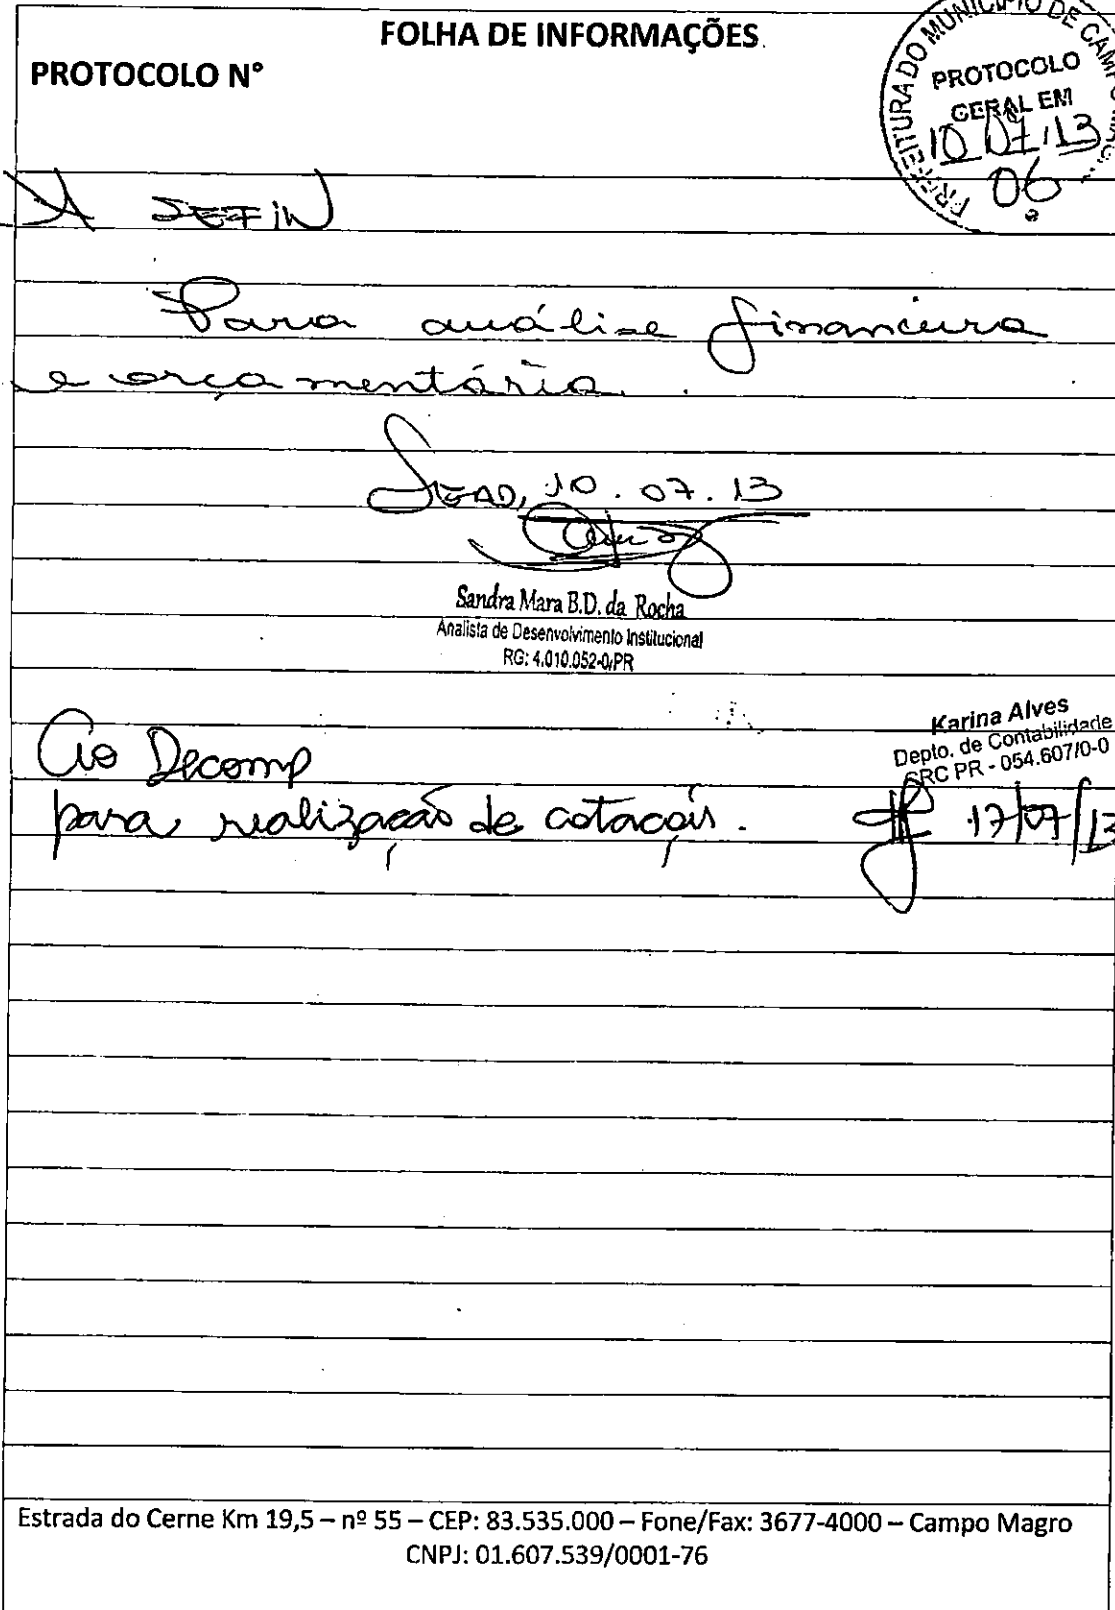 FOLHA DE INFORMAÇÕES
PROTOCOLO N°
PREFEITURA DO MUNICÍPIO DE CAMPO
PROTOCOLO
GERAL EM
10 07 13
06
A SEFIN
Para análise financeira
e orçamentária.
SEAD, 10.07.13
Sandra Mara B.D. da Rocha
Analista de Desenvolvimento Institucional
RG: 4.010.052-0/PR
Karina Alves
Depto. de Contabilidade
CRC PR - 054.607/0-0
Ao Decomp
para realização de cotações. 17/07/13
Estrada do Cerne Km 19,5 – nº 55 – CEP: 83.535.000 – Fone/Fax: 3677-4000 – Campo Magro
CNPJ: 01.607.539/0001-76